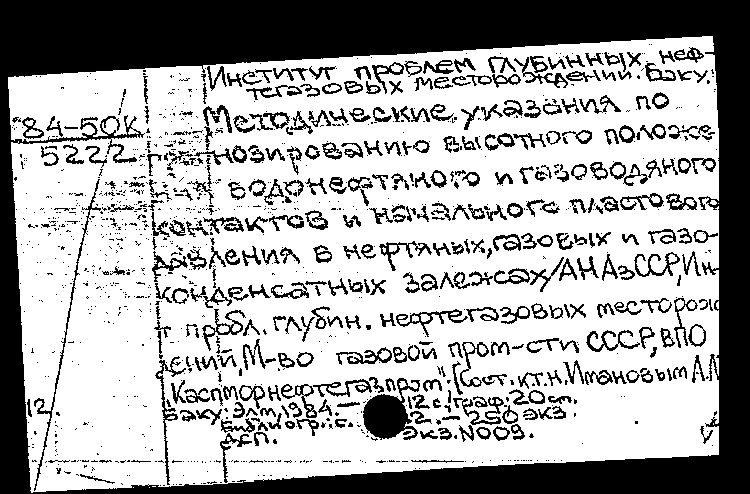 Институт проблем глубинных неф-
тегазовых месторождений. Баку.
84-50К
5222
Методические указания по
прогнозированию высотного положе-
ния водонефтяного и газоводяного
контактов и начального пластового
давления в нефтяных, газовых и газо-
конденсатных залежах/АН АзССР, Ин-
т пробл. глубин. нефтегазовых месторож-
дений, М-во газовой пром-сти СССР, ВПО
"Каспморнефтегазпром"; [Сост. к.т.н. Имановым А.А.
Баку: Элм, 1984. — 12 с., граф.; 20 см.
Библиогр.: с. 12. — 250 экз.
ДСП. Экз. N009.
12.